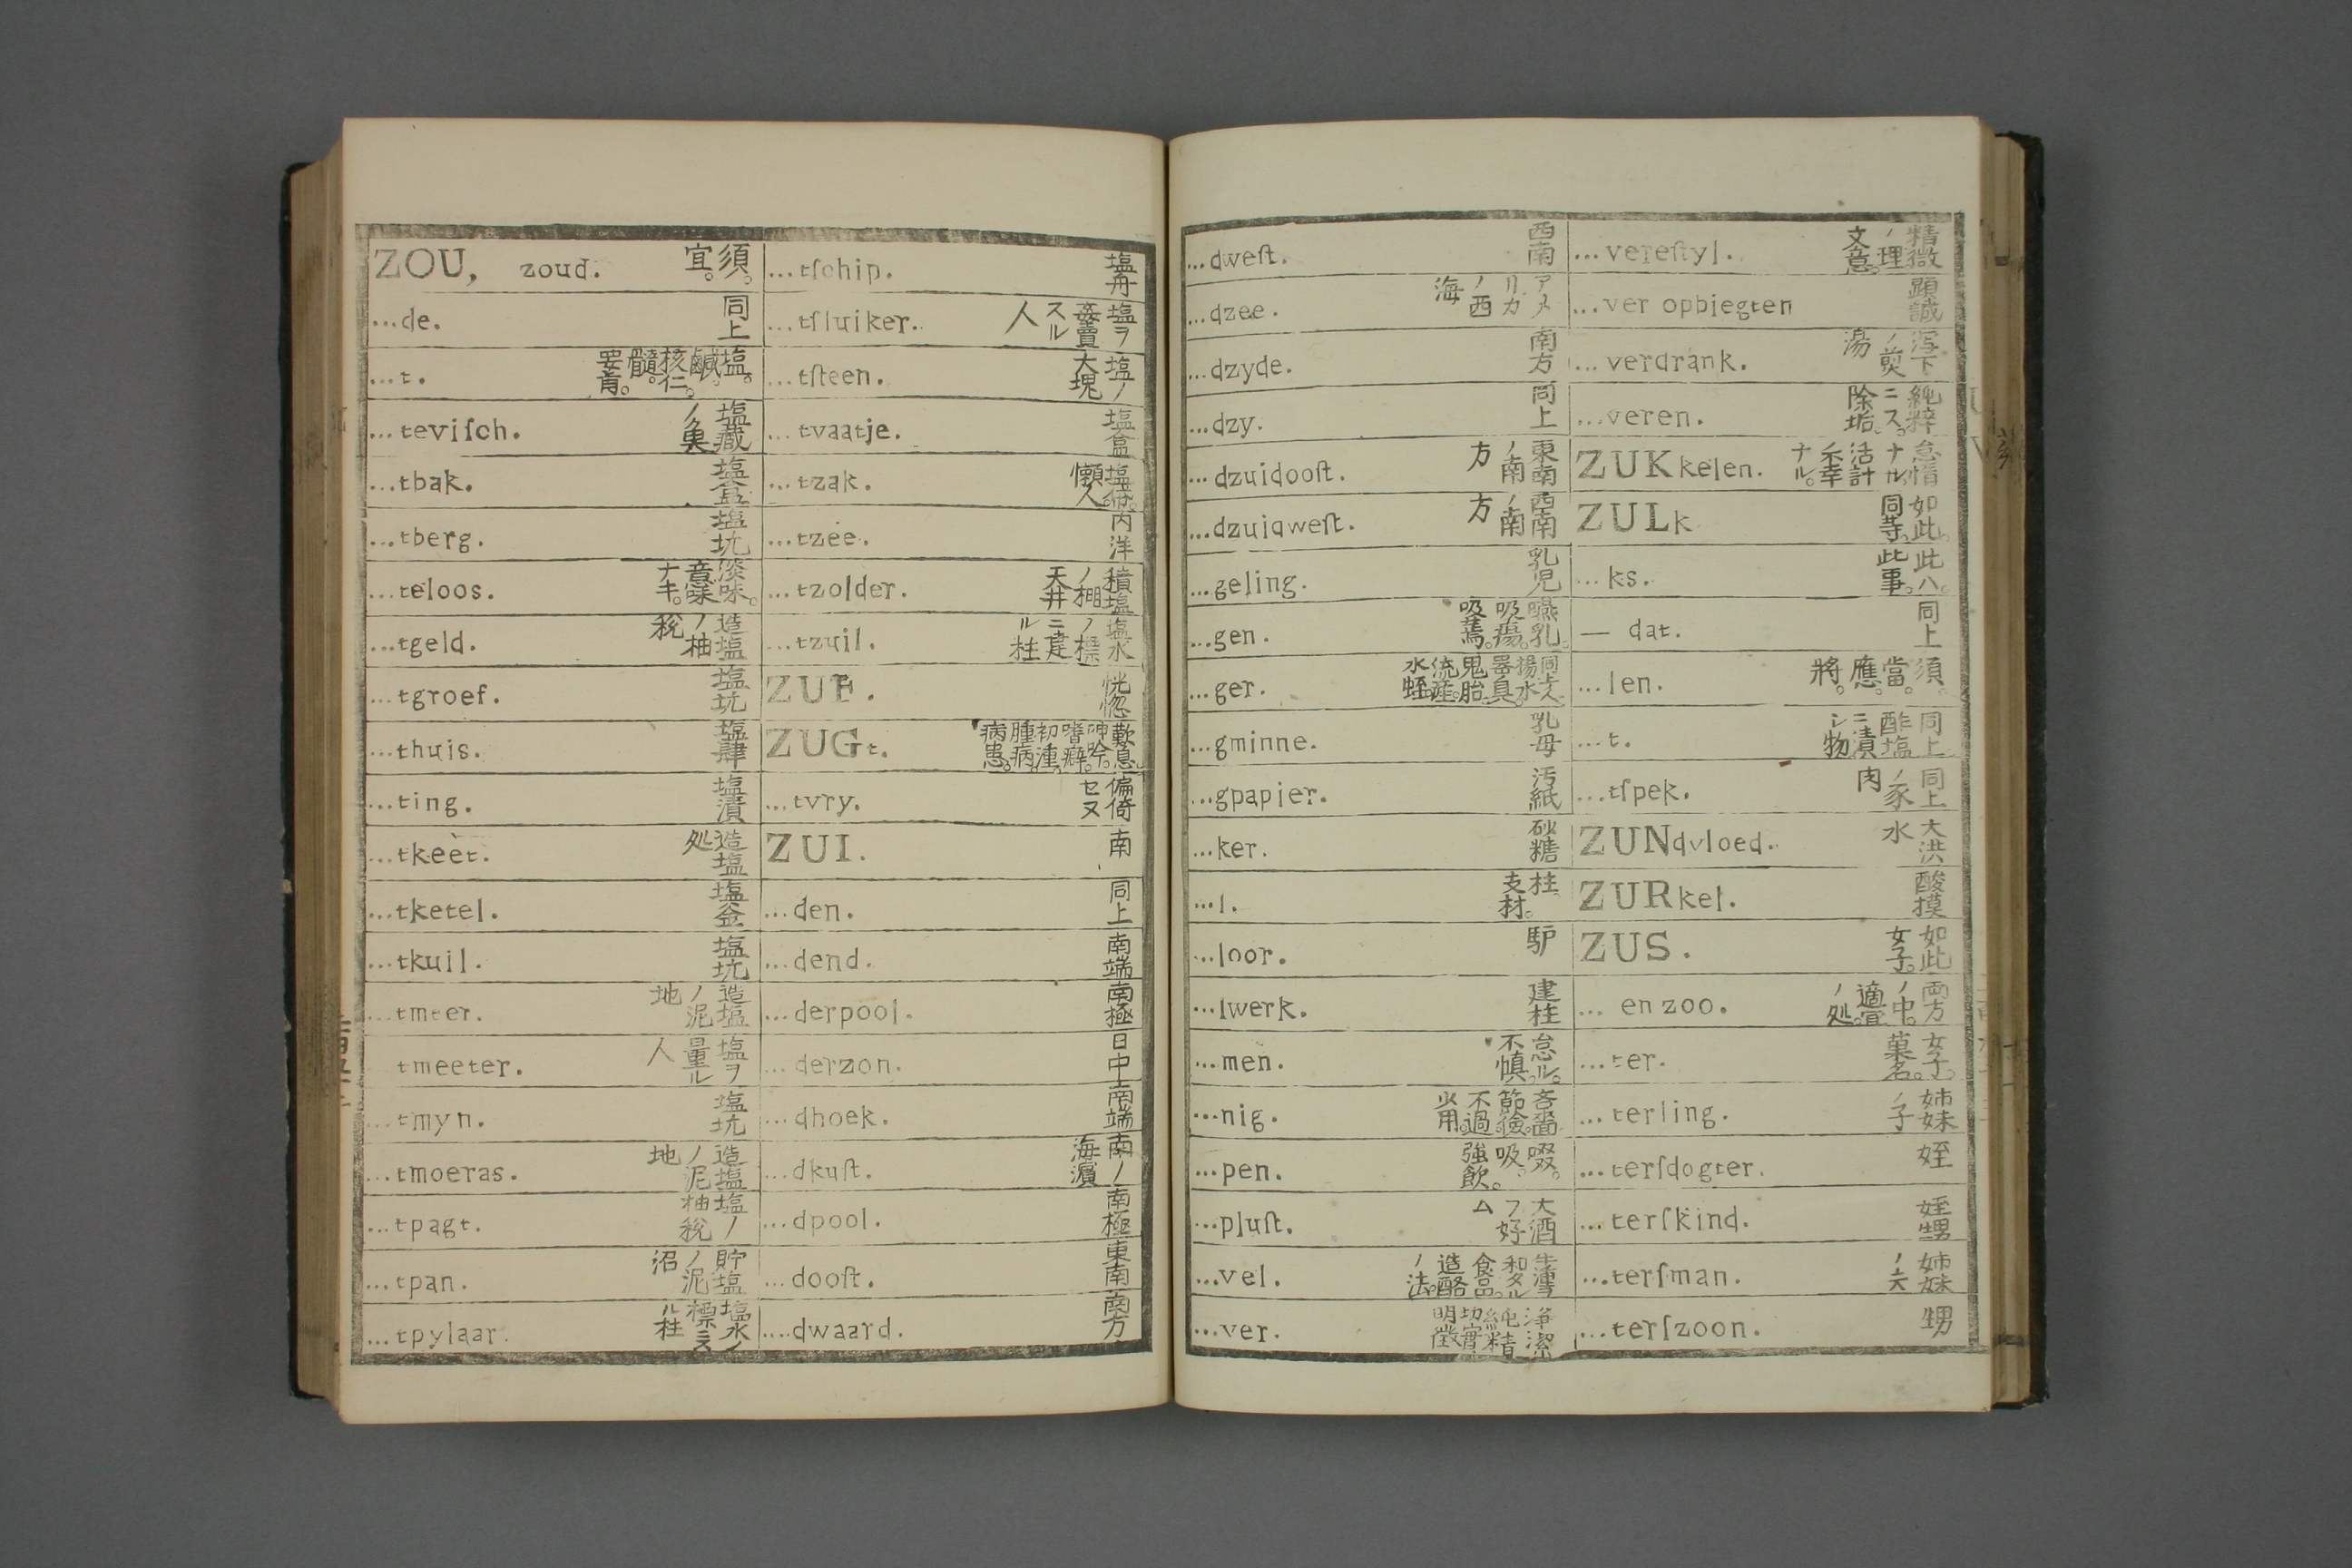 ZOU, zoud. 須。宜。
...de. 同上
...t. 塩。鹹。核仁。髓。要肯。
...teviſch. 塩藏ノ魚
...tbak. 塩
...tberg. 塩坑
...teloos. 淡味。意味ナキ。
...tgeld. 造塩ノ柚税
...tgroef. 塩坑
...thuis. 塩肆
...ting. 塩漬
...tkeet. 造塩処
...tketel. 塩釜
...tkuil. 塩坑
...tmeer. 造塩ノ泥地
tmeeter. 塩ヲ量ル人
...tmyn. 塩坑
...tmoeras. 造塩ノ泥地
...tpagt. 塩ノ柚税
...tpan. 貯塩ノ泥沼
...tpylaar. 塩水ノ標ニ立ル柱
...tſchip. 塩舟
...tſluiker. 塩ヲ姦賣スル人
...tſteen. 塩ノ大塊
...tvaatje. 塩盒
...tzak. 塩 懶人
...tzee. 内洋
...tzolder. 積塩ノ棚天井
...tzuil. 塩水ノ標ニ建ル柱
ZUF. 恍惚
ZUGt. 歎息。呻吟。嗜癖。初 腫病。病患。
...tvry. 偏倚セヌ
ZUI. 南
...den. 同上
...dend. 南端
...derpool. 南極
...derzon. 日中
...dhoek. 南端
...dkuſt. 南ノ海濵
...dpool. 南極
...dooſt. 東南
...dwaard. 南方
...dweſt. 西南
...dzee. アメリカノ西海
...dzyde. 南方
...dzy. 同上
...dzuidooſt. 東南ノ南方
...dzuidweſt. 西南ノ南方
...geling. 乳児
...gen. 嚥乳。吸瘍。吸
...ger. 同上人 揚水器具。鬼胎。流産。水蛭。
...gminne. 乳母
...gpapier. 汚紙
...ker. 砂糖
...l. 柱。支材。
...loor. 馿
...lwerk. 建柱
...men. 怠ル。不慎。
...nig. 吝嗇。節儉。不過。少用。
...pen. 啜。吸。強飲。
...pluſt. 大酒フ好ム
...vel. 和タル食品。造酪ノ法。
...ver. 浄潔 純精 切實 明徴
...vereſtyl. 精微ノ理。文意。
...ver opbiegten 顕誠
...verdrank. 泻下ノ煎湯
...veren. 純粹ニス。除垢。
ZUKkelen. 怠惰ナル。活計 不幸ナル。
ZULk 如此。同等。
...ks. 此ハ。此事。
— dat. 同上
...len. 須。當。應。將。
...t. 同上 酢塩ニ漬シ物
...tſpek. 同上ノ豕肉
ZUNdvloed. 大洪水
ZURkel. 酸摸
ZUS. 如此 女子。
... en zoo. 両方ノ中。適宜ノ処。
...ter. 女子。菓名。
...terling. 姉妹ノ子
...terſdogter. 姪
...terſkind. 姪甥
...terſman. 姉妹ノ夫
...terſzoon. 甥